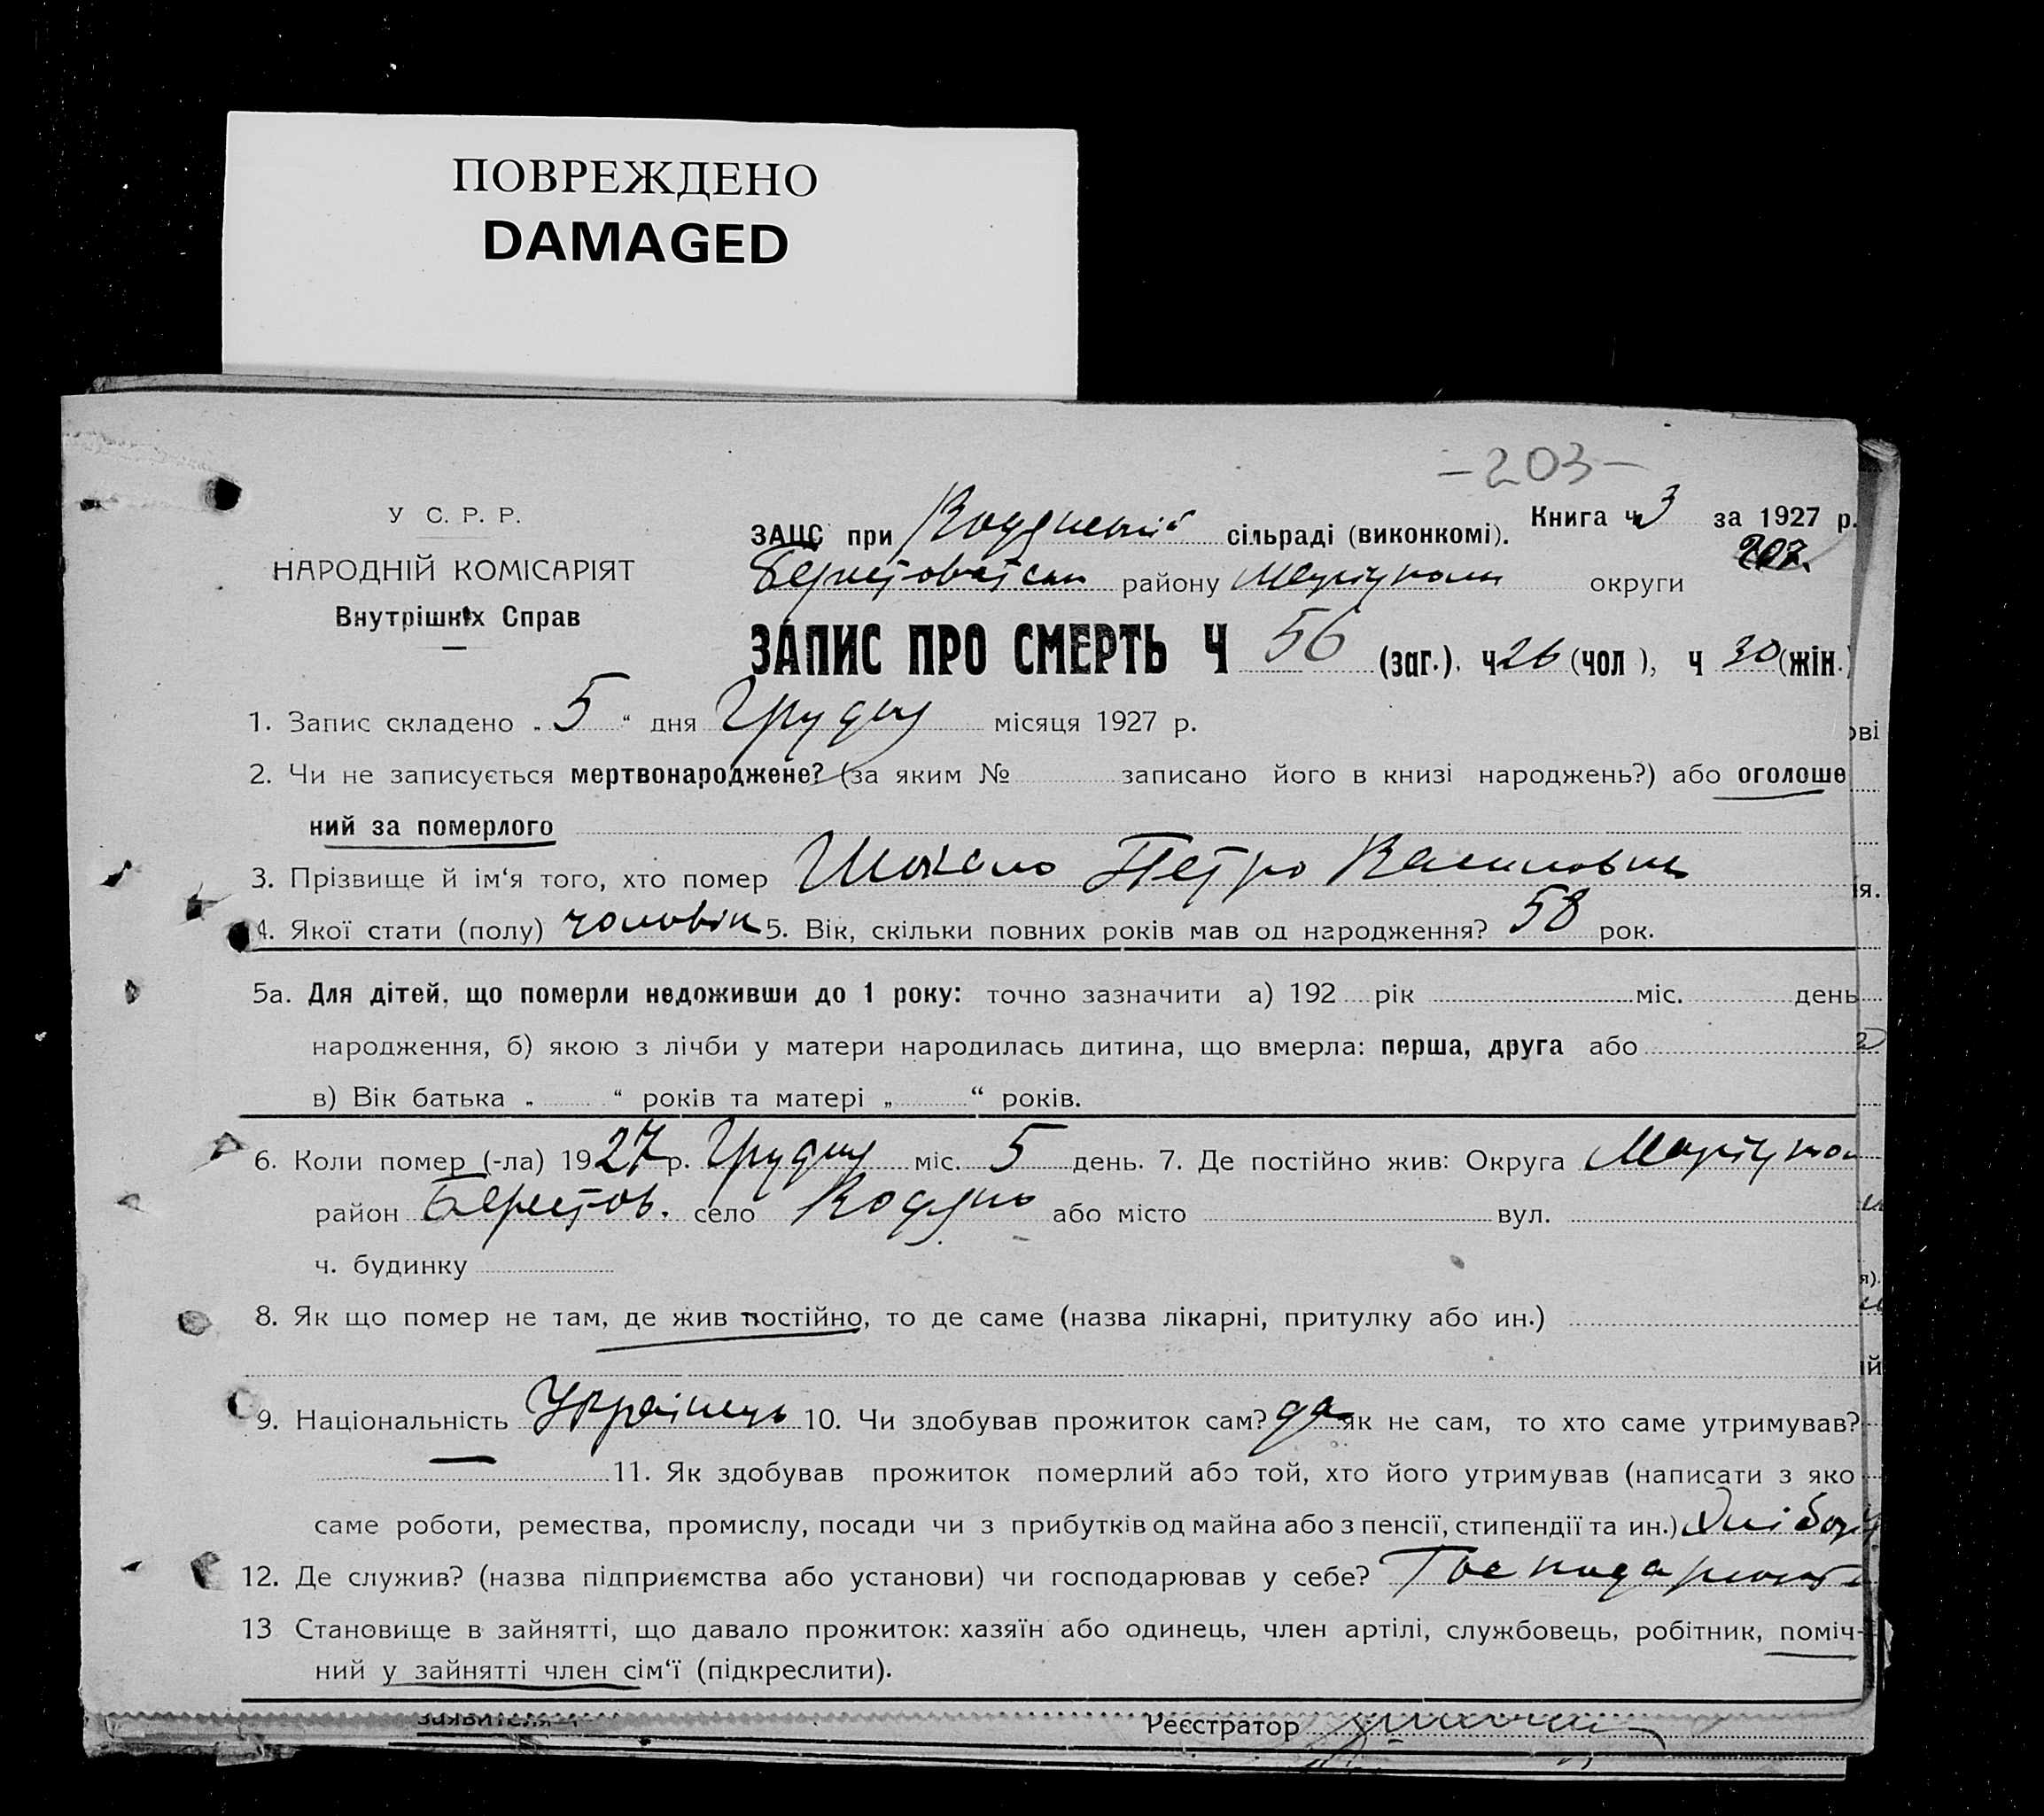 ПОВРЕЖДЕНО
DAMAGED
-203-
У С. Р. Р.
НАРОДНІЙ КОМІСАРІЯТ
Внутрішніх Справ
Книга ч 3 за 1927 р.
203
ЗАЦС при сільраді (виконкомі).
району округи
ЗАПИС ПРО СМЕРТЬ Ч 56 (заг.). ч 26 (чол ), ч 30 (жін.)
1. Запис складено „ 5 “ дня Грудня місяця 1927 р.
2. Чи не записується мертвонароджене? (за яким № записано його в книзі народжень?) або оголоше
ний за померлого
3. Прізвище й ім‘я того, хто помер Петро
4. Якої стати (полу) чоловік 5. Вік, скільки повних років мав од народження? 58 рок.
5а. Для дітей, що померли недоживши до 1 року: точно зазначити а) 192 рік міс. день
народження, б) якою з лічби у матери народилась дитина, що вмерла: перша, друга або
в) Вік батька „ “ років та матері „ “ років.
6. Коли помер (-ла) 1927 р. Грудня міс. 5 день. 7. Де постійно жив: Округа Маріупол
район Берестов. село Водяно або місто вул.
ч. будинку
8. Як що помер не там, де жив постійно, то де саме (назва лікарні, притулку або ин.)
9. Національність Українець 10. Чи здобував прожиток сам? да як не сам, то хто саме утримував?
— 11. Як здобував прожиток померлий або той, хто його утримував (написати з яко
саме роботи, ремества, промислу, посади чи з прибутків од майна або з пенсії, стипендії та ин.)
12. Де служив? (назва підприємства або установи) чи господарював у себе?
13 Становище в зайнятті, що давало прожиток: хазяїн або одинець, член артілі, службовець, робітник, поміч-
ний у зайнятті член сім‘ї (підкреслити).
заявителя
Реєстратор